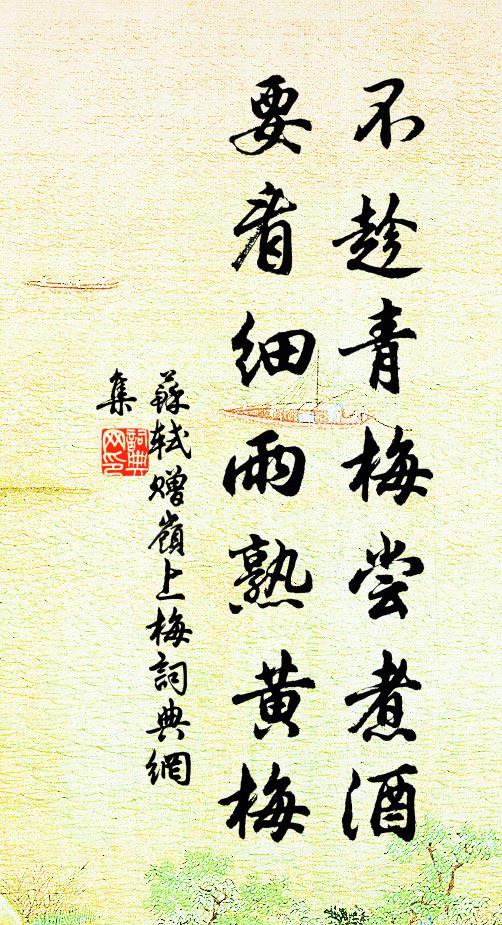 不趁青梅尝煮酒
要看细雨熟黄梅
蘇軾赠嶺上梅詞典網
集
詞典
网印